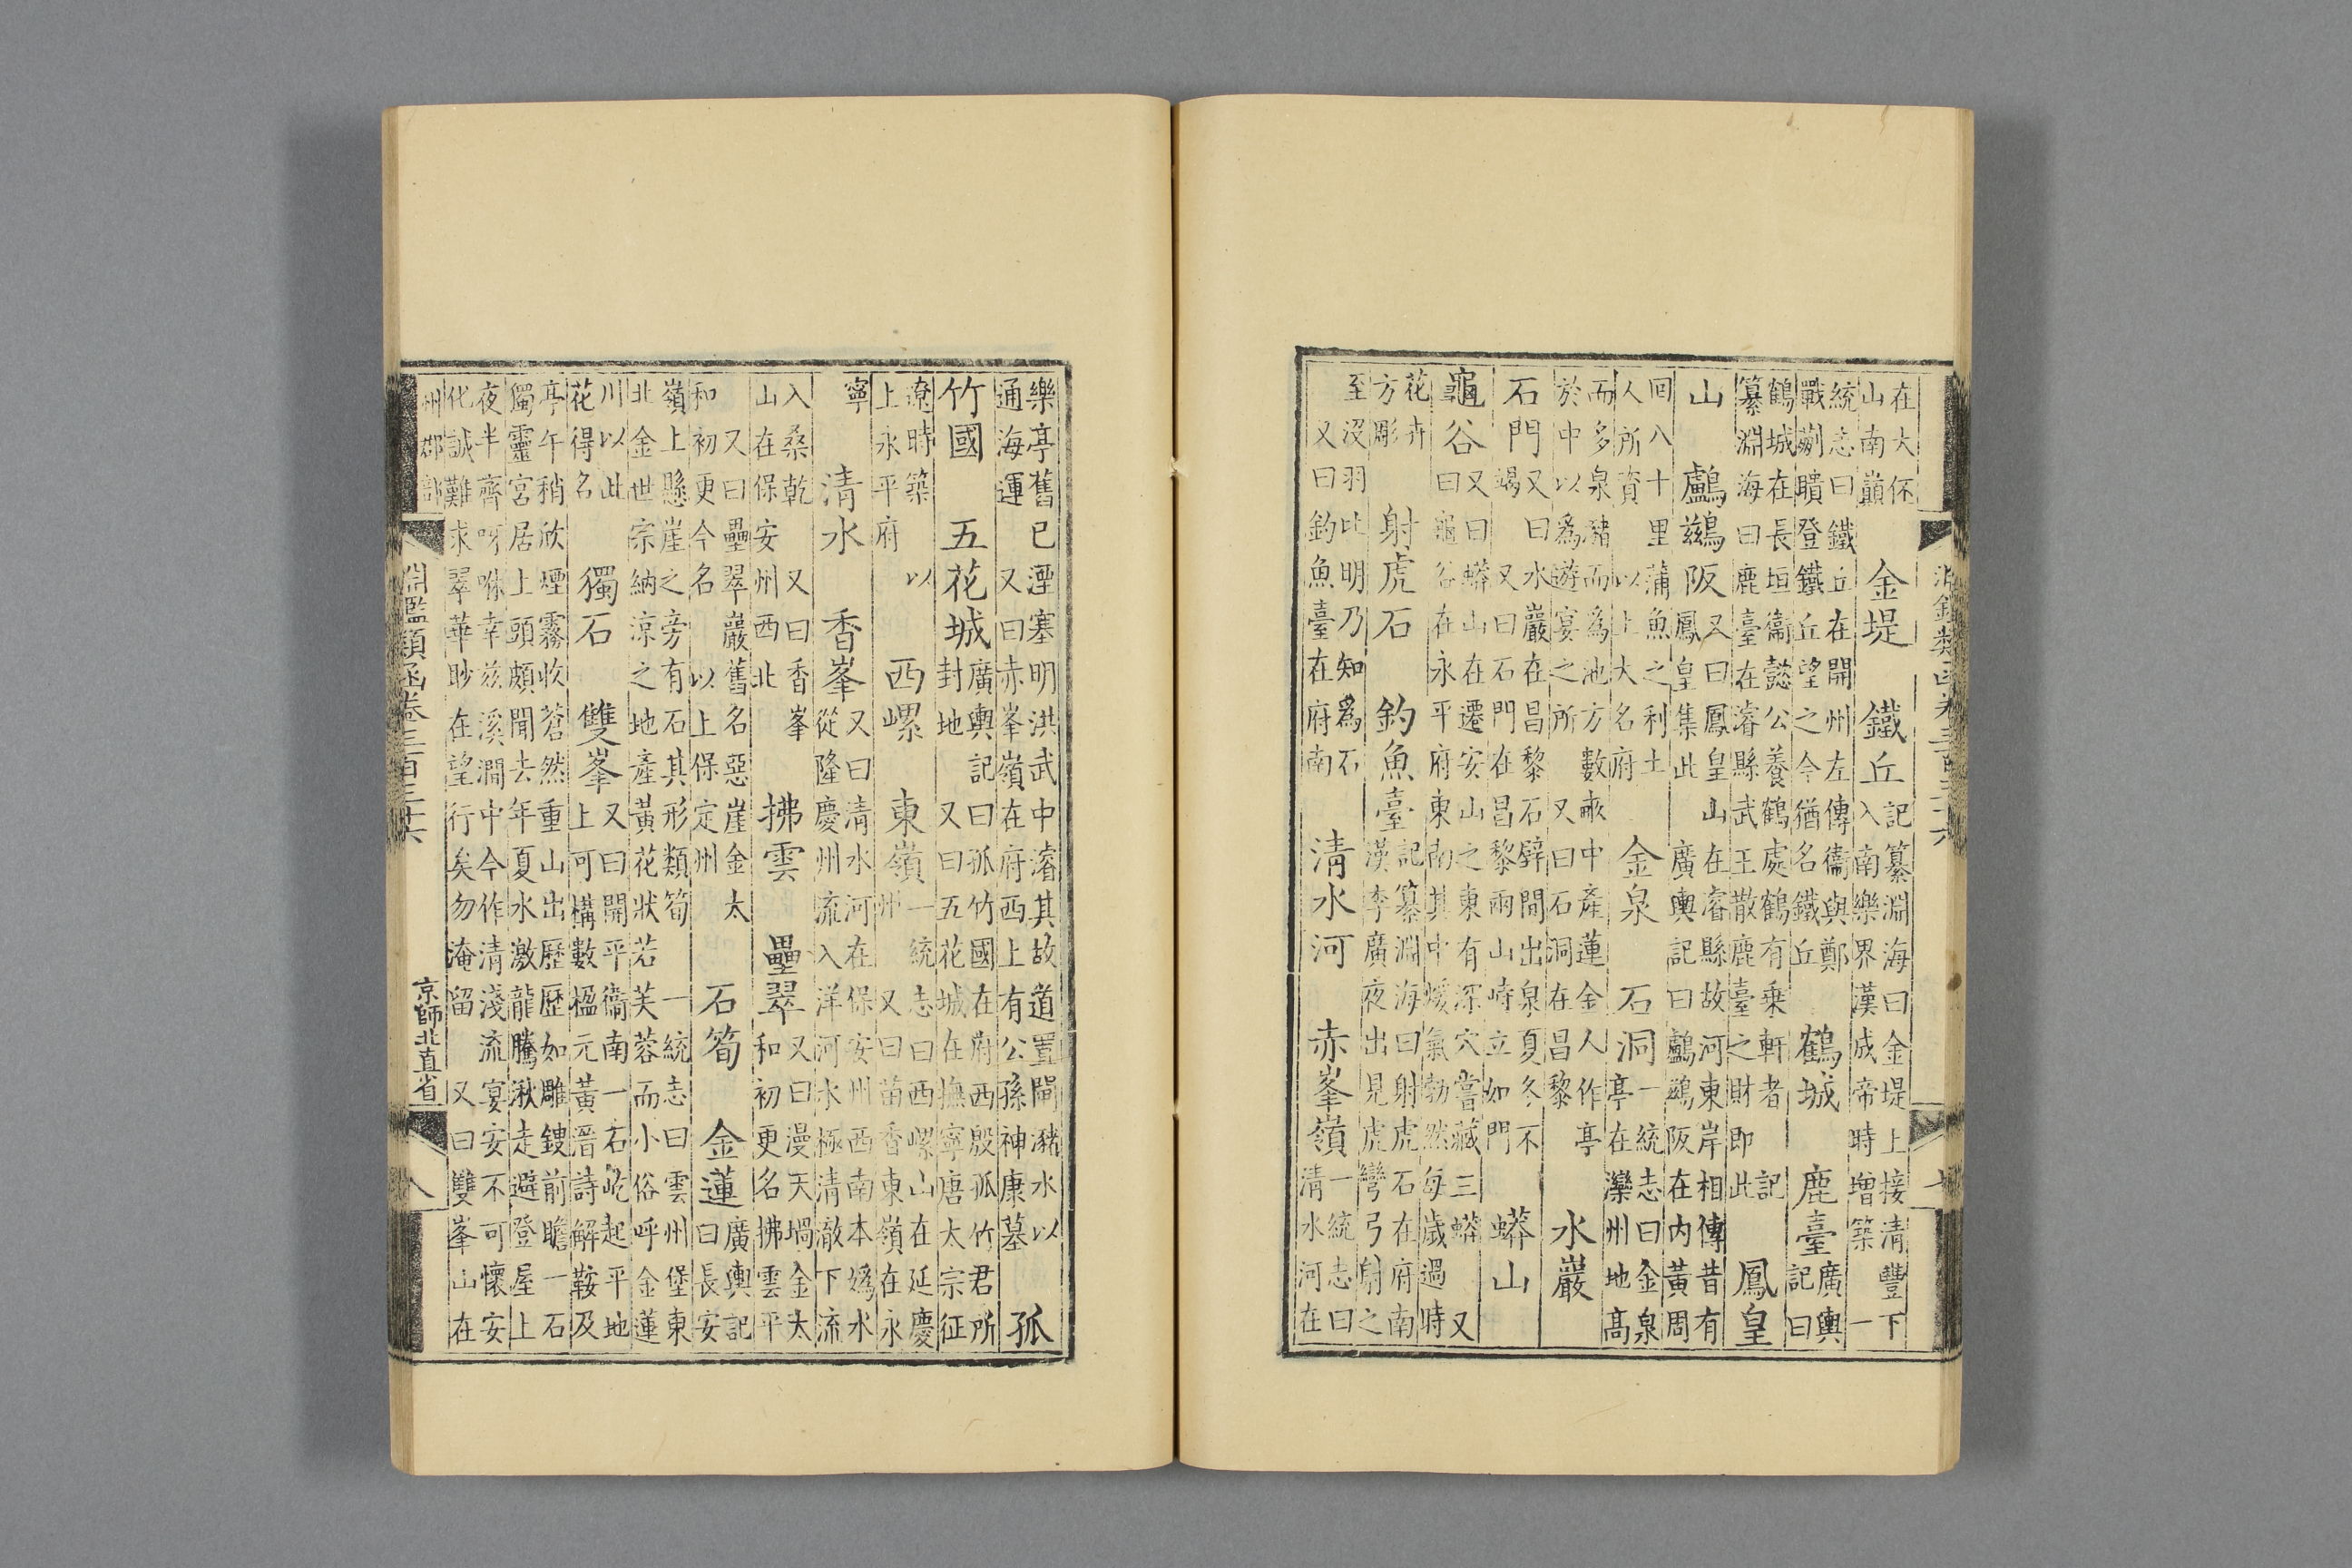 淵鑑類函卷三百三十六
在大伾山南巔 金堤 鐵丘 記纂淵海曰金堤上接清豐下入南樂界漢成帝時增築 一
統志曰鐵丘在開州左傳衞與鄭戰蒯聵登鐵丘望之今猶名鐵丘 鶴城 鹿臺 廣輿記曰
鶴城在長垣衞懿公養鶴處鶴有乘軒者 記纂淵海曰鹿臺在濬縣武王散鹿臺之財即此 鳳皇
山 鸕鷀阪 又曰鳳皇山在濬縣故河東岸相傳昔有鳳皇集此 廣輿記曰鸕鷀阪在内黃周
回八十里蒲魚之利土人所資以上大名府 金泉 石洞 一統志曰金泉亭在灤州地高
而多泉瀦而為池方數畝中產蓮金人作亭於中以爲遊宴之所 又曰石洞在昌黎 水巖
石門 又曰水巖在昌黎石壁間出泉夏冬不竭 又曰石門在昌黎兩山峙立如門 蟒山
龜谷 又曰蟒山在遷安山之東有深穴嘗藏三蟒 又曰龜谷在永平府東南其中煖氣勃然每歲過時
花卉方彫 射虎石 釣魚臺 記纂淵海曰射虎石在府南漢李廣夜出見虎彎弓射之
至沒羽比明乃知爲石 又曰釣魚臺在府南 清水河 赤峯嶺 一統志曰清水河在
樂亭舊已湮塞明洪武中濬其故道置閘瀦水以通海運 又曰赤峯嶺在府西上有公孫神康墓 孤
竹國 五花城 廣輿記曰孤竹國在府西殷孤竹君所封地 又曰五花城在撫寧唐太宗征
遼時築 以上永平府 西嶫 東嶺 一統志曰西嶫山在延慶州 又曰苗香東嶺在永
寧 清水 香峯 又曰清水河在保安州西南本媯水從隆慶州流入洋河水極清澈下流
入桑乾 又曰香峯山在保安州西北 拂雲 壘翠 又曰漫天堝金太和初更名拂雲平
又曰壘翠巖舊名惡崖金太和初更今名 以上保定州 石筍 金蓮 廣輿記曰長安
嶺上懸崖之旁有石其形類筍 一統志曰雲州堡東北金世宗納涼之地產黃花狀若芙蓉而小俗呼金蓮
川以此花得名 獨石 雙峯 又曰開平衞南一石屹起平地上可構數楹元黃溍詩解鞍及
亭午稍欣煙霧收蒼然重山出歷歷如雕鎪前瞻一石獨靈宮居上頭頗聞去年夏水激龍騰湫走避登屋上
夜半齊呀咻幸茲溪澗中今作清淺流宴安不可懷安化誠難求翠華眇在望行矣勿淹留 又曰雙峯山在
州郡部 淵鑑類函卷三百三十六 京師北直省 八